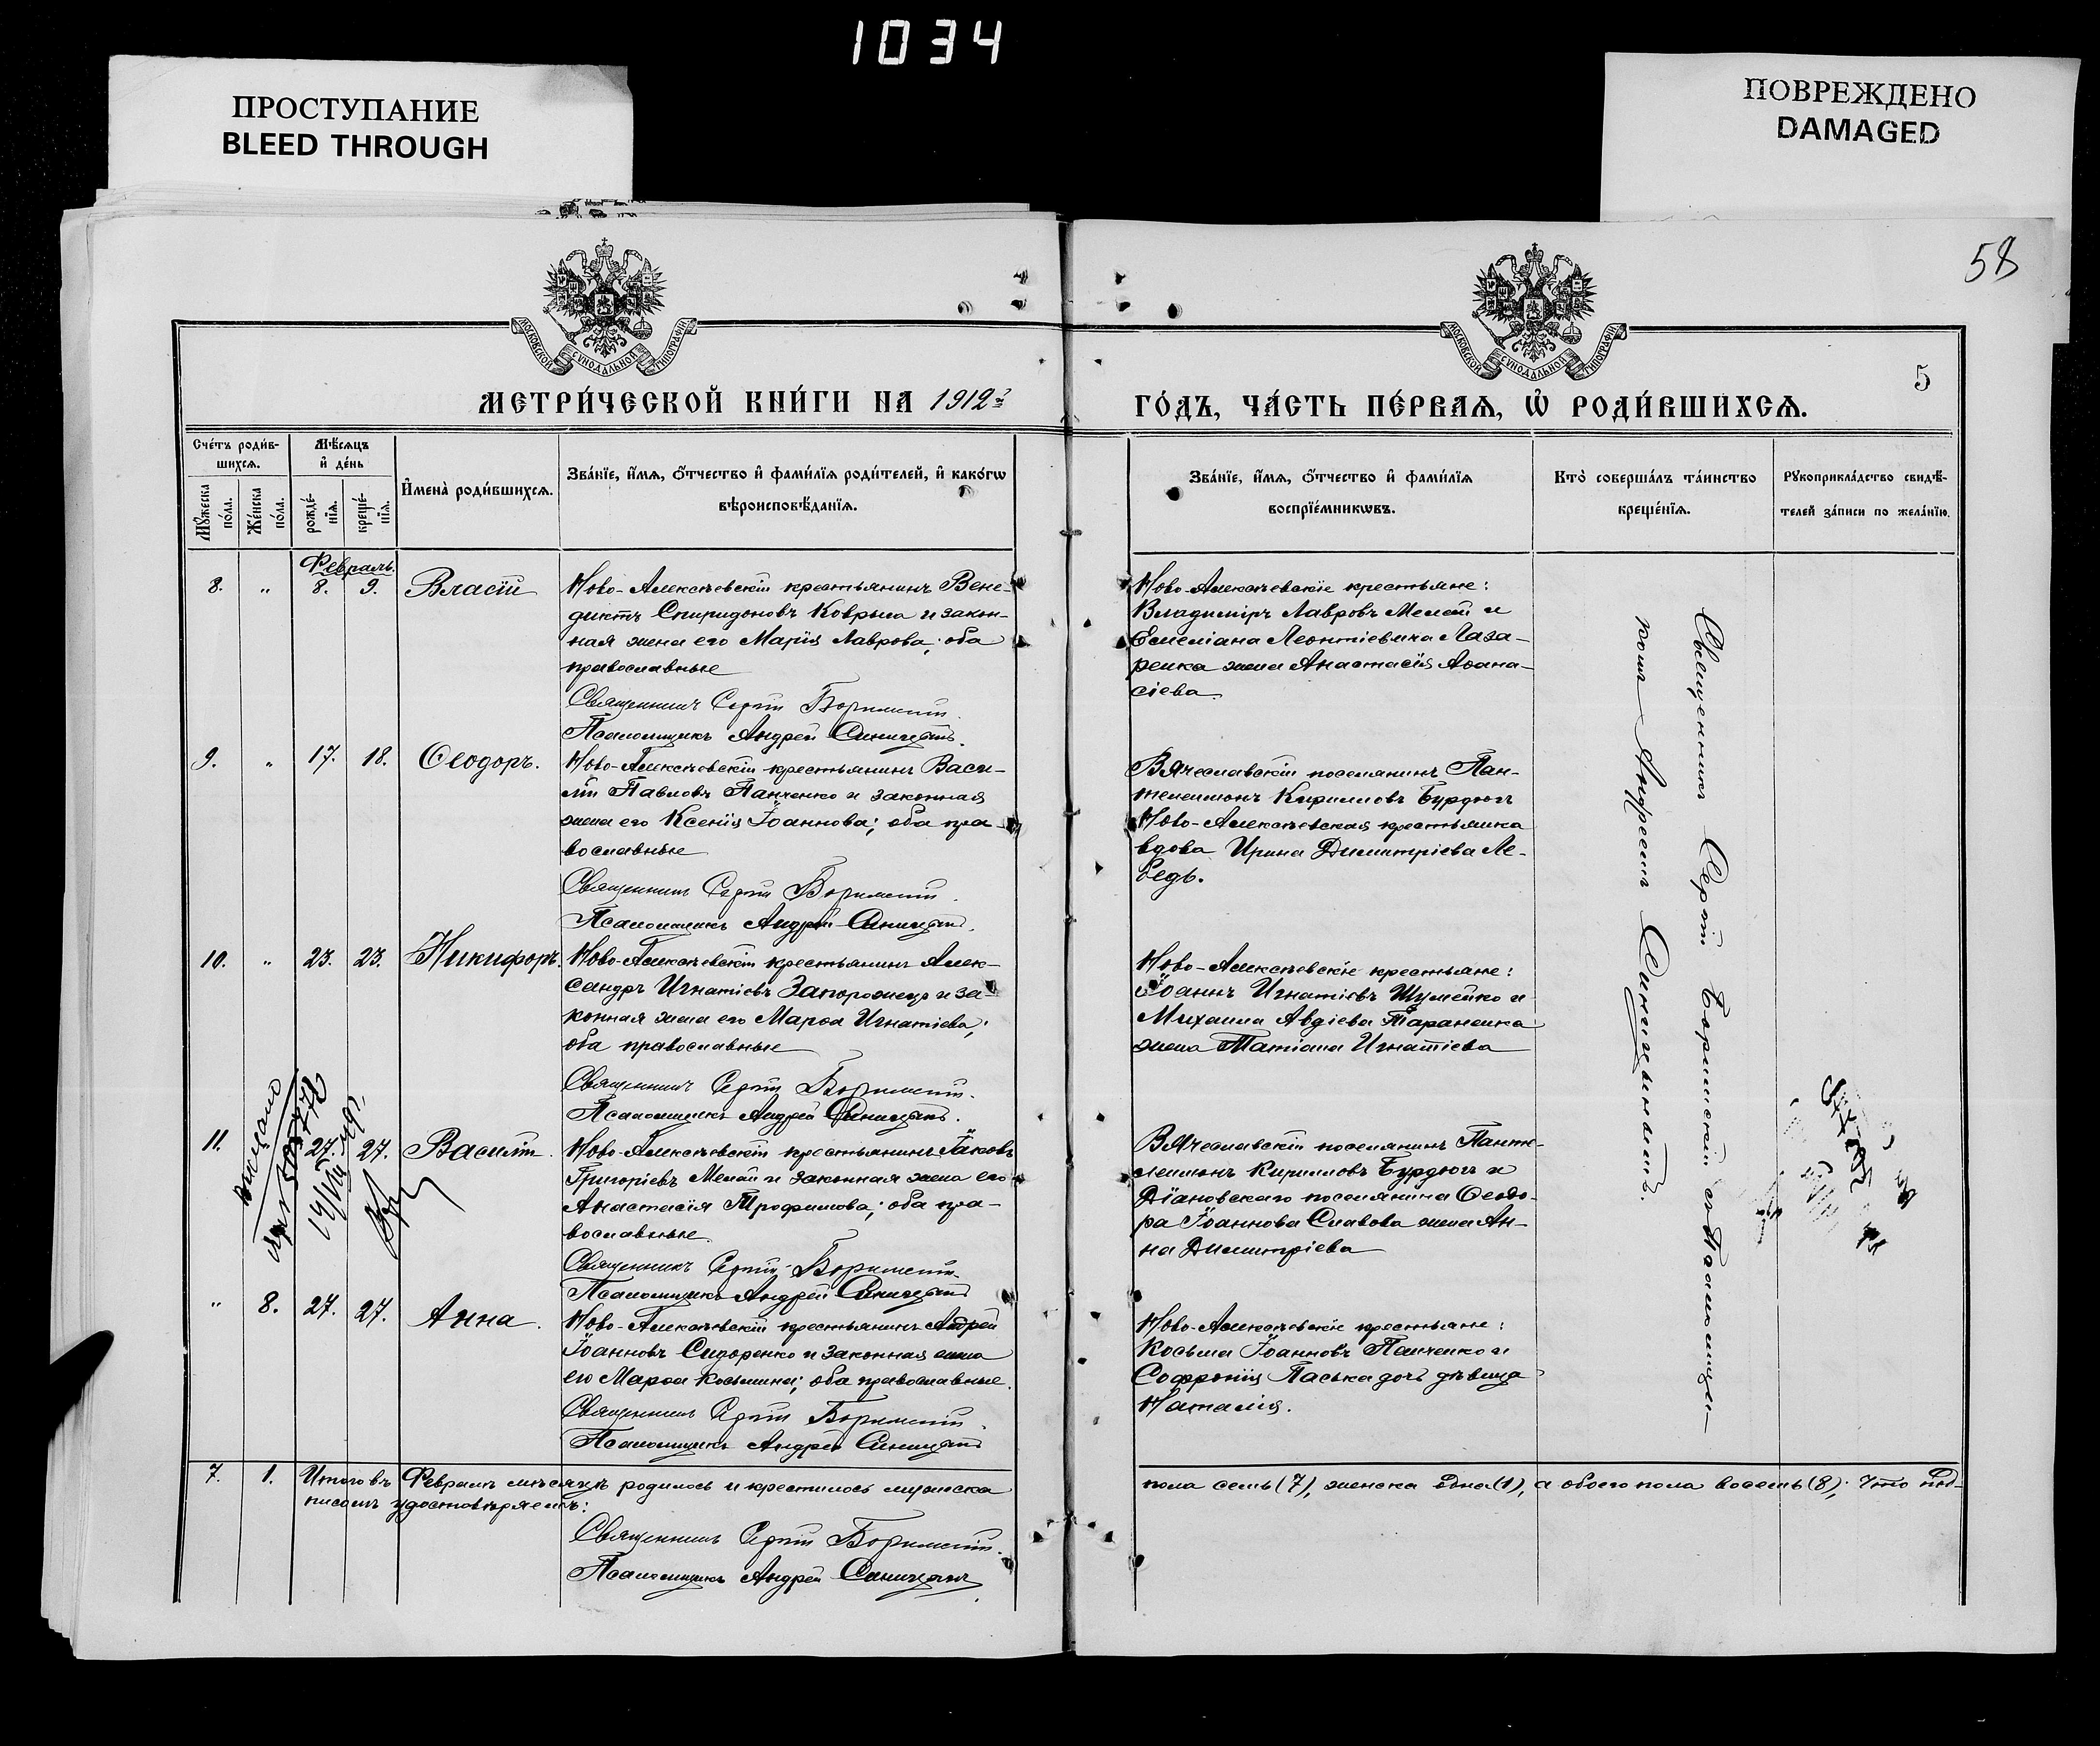 1034
ПРОСТУПАНИЕ
BLEED THROUGH
ПОВРЕЖДЕНО
DAMAGED
58
МОСКОВСКОЙ СѴНОДАЛЬНОЙ ТИПОГРАФІИ
МОСКОВСКОЙ СѴНОДАЛЬНОЙ ТИПОГРАФІИ
5
МЕТРИ́ЧЕСКОЙ КНИ́ГИ НА 1912 г.
ГО́ДЪ, ЧА́СТЬ ПЕ́РВАѦ, Ѡ҆ РОДИ́ВШИХСѦ.
Сче́тъ роди́в-
шихсѧ.
Мѣ́сѧцъ
и҆ де́нь
Мꙋ́жеска по́ла.
Же́нска по́ла.
рожде́-
нїѧ.
креще́-
нїѧ.
И҆мена̀ роди́вшихсѧ.
Зва́нїе, и҆́мѧ, ѻ҆́тчество и҆ фами́лїѧ роди́телей, и҆ како́гѡ
вѣроисповѣ́данїѧ.
Зва́нїе, и҆́мѧ, ѻ҆́тчество и҆ фами́лїѧ
воспрїе́мникѡвъ.
Кто̀ соверша́лъ та́инство
креще́нїѧ.
Рꙋкоприкла́дство свидѣ́-
телей за́писи по жела́нїю.
Февраль.
8. " 8. 9. Власій
Ново-Алексѣевскій крестьянинъ Вене-
диктъ Спиридоновъ Коврыга и закон-
ная жена его Марія Лаврова; оба
православные
Священникъ Сергій
Псаломщикъ Андрей
Ново-Алексѣевскіе крестьяне:
Владиміръ Лавровъ Мелай и
Емеліана Леонтіевича Лаза-
ренка жена Анастасія Аѳана-
сіева.
9. " 17. 18. Ѳеодоръ.
Ново-Алексѣевскій крестьянинъ Васи-
лій Павловъ Панченко и законная
жена его Ксенія Іоаннова; оба пра-
вославные
Священникъ Сергій
Псаломщикъ Андрей
Вячеславскій поселянинъ Пан-
телеимонъ Кирилловъ Бурдюгъ
Ново-Алексѣевская крестьянка
вдова Ирина Димитріева Ле-
бедь.
10. " 23. 23. Никифоръ.
Ново-Алексѣевскій крестьянинъ Алек-
сандръ Игнатіевъ Запорожецъ и за-
конная жена его Марѳа Игнатіева;
оба православные
Священникъ Сергій
Псаломщикъ Андрей
Ново-Алексѣевскіе крестьяне:
Іоаннъ Игнатіевъ Шумейко и
Михаила Авдіева Тараненка
жена Татіана Игнатіева
11. 27. 27. Василій.
Ново-Алексѣевскій крестьянинъ Іаковъ
Григоріевъ Мелай и законная жена его
Анастасія Трофимова; оба пра-
вославные.
Священникъ Сергій
Псаломщикъ Андрей
Вячеславскій поселянинъ Панте-
леимонъ Кирилловъ Бурдюгъ и
Діановскаго поселянина Ѳеодо-
ра Іоаннова Славова жена Ан-
на Димитріева
" 8. 27. 27. Анна.
Ново-Алексѣевскій крестьянинъ Андрей
Іоанновъ Сидоренко и законная жена
его Марѳа Косьмина; оба православные.
Священникъ Сергій
Псаломщикъ Андрей
Ново-Алексѣевскіе крестьяне:
Косьма Іоанновъ Панченко и
Софронія Паська дочь дѣвица
Наталія.
Священникъ Сергій съ Псаломщи-
комъ Андреемъ
7. 1. Итого въ Февралѣ мѣсяцѣ родилось и крестилось мужеска
пола семь (7), женска одна (1), а обоего пола восемь (8); Что под-
писомъ удостовѣряемъ:
Священникъ Сергій
Псаломщикъ Андрей